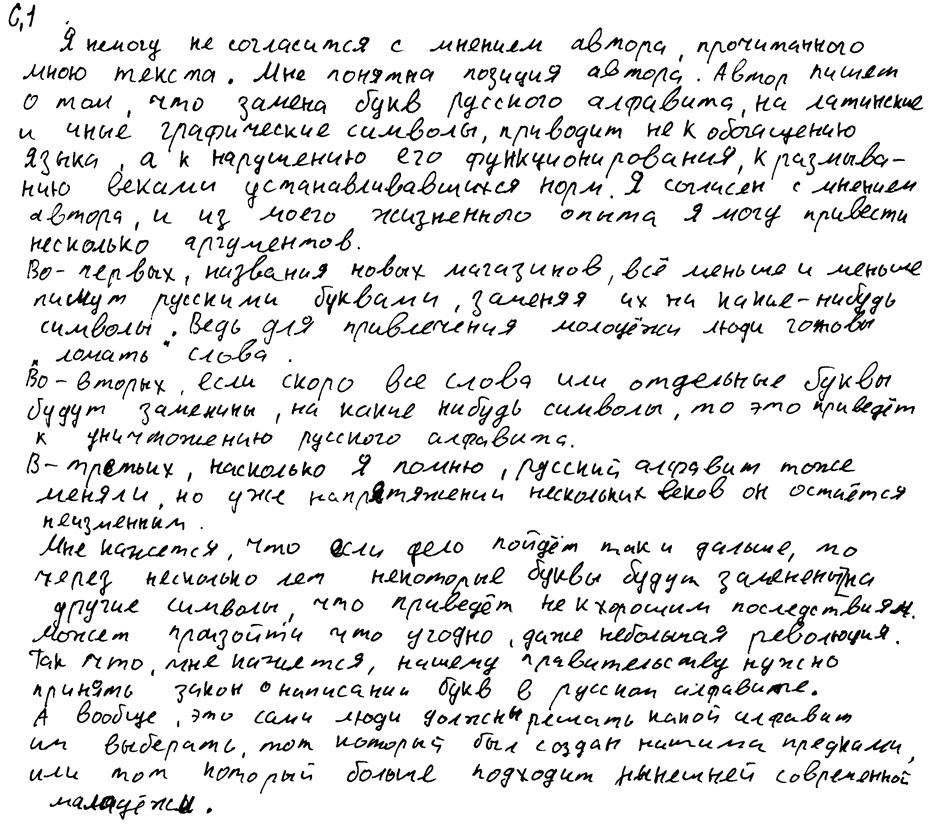 С,1
Я немогу не согласится с мнением автора, прочитанного
мною текста. Мне понятна позиция автора. Автор пишет
о том, что замена букв русского алфавита, на латинские
и иные графические символы, приводит не к обогащению
языка, а к нарушению его функционирования, к размыва-
нию веками устанавливавшихся норм. Я согласен с мнением
автора, и из моего жизненного опыта я могу привести
несколько аргументов.
Во-первых, названия новых магазинов, всё меньше и меньше
пишут русскими буквами, заменяя их на какие-нибудь
символы. Ведь для привлечения молодёжи люди готовы
"ломать" слова.
Во-вторых, если скоро все слова или отдельные буквы
будут заменины, на какие нибудь символы, то это приведёт
к уничтожению русского алфавита.
В-третьих, насколько я помню, русский алфавит тоже
меняли, но уже напрятяжении нескольких веков он остаётся
неизменным.
Мне кажется, что если дело пойдёт так и дальше, то
через несколько лет некоторые буквы будут заменены на
другие символы, что приведёт не к хорошим последствиям.
Может произойти что угодно, даже небольшая революция.
Так что, мне кажется, нашему правительству нужно
принять закон о написании букв в русском алфавите.
А вообще, это сами люди должны решать какой алфавит
им выберать, тот который был создан нашими предками,
или тот который больше подходит нынешней современной
маладёжи.